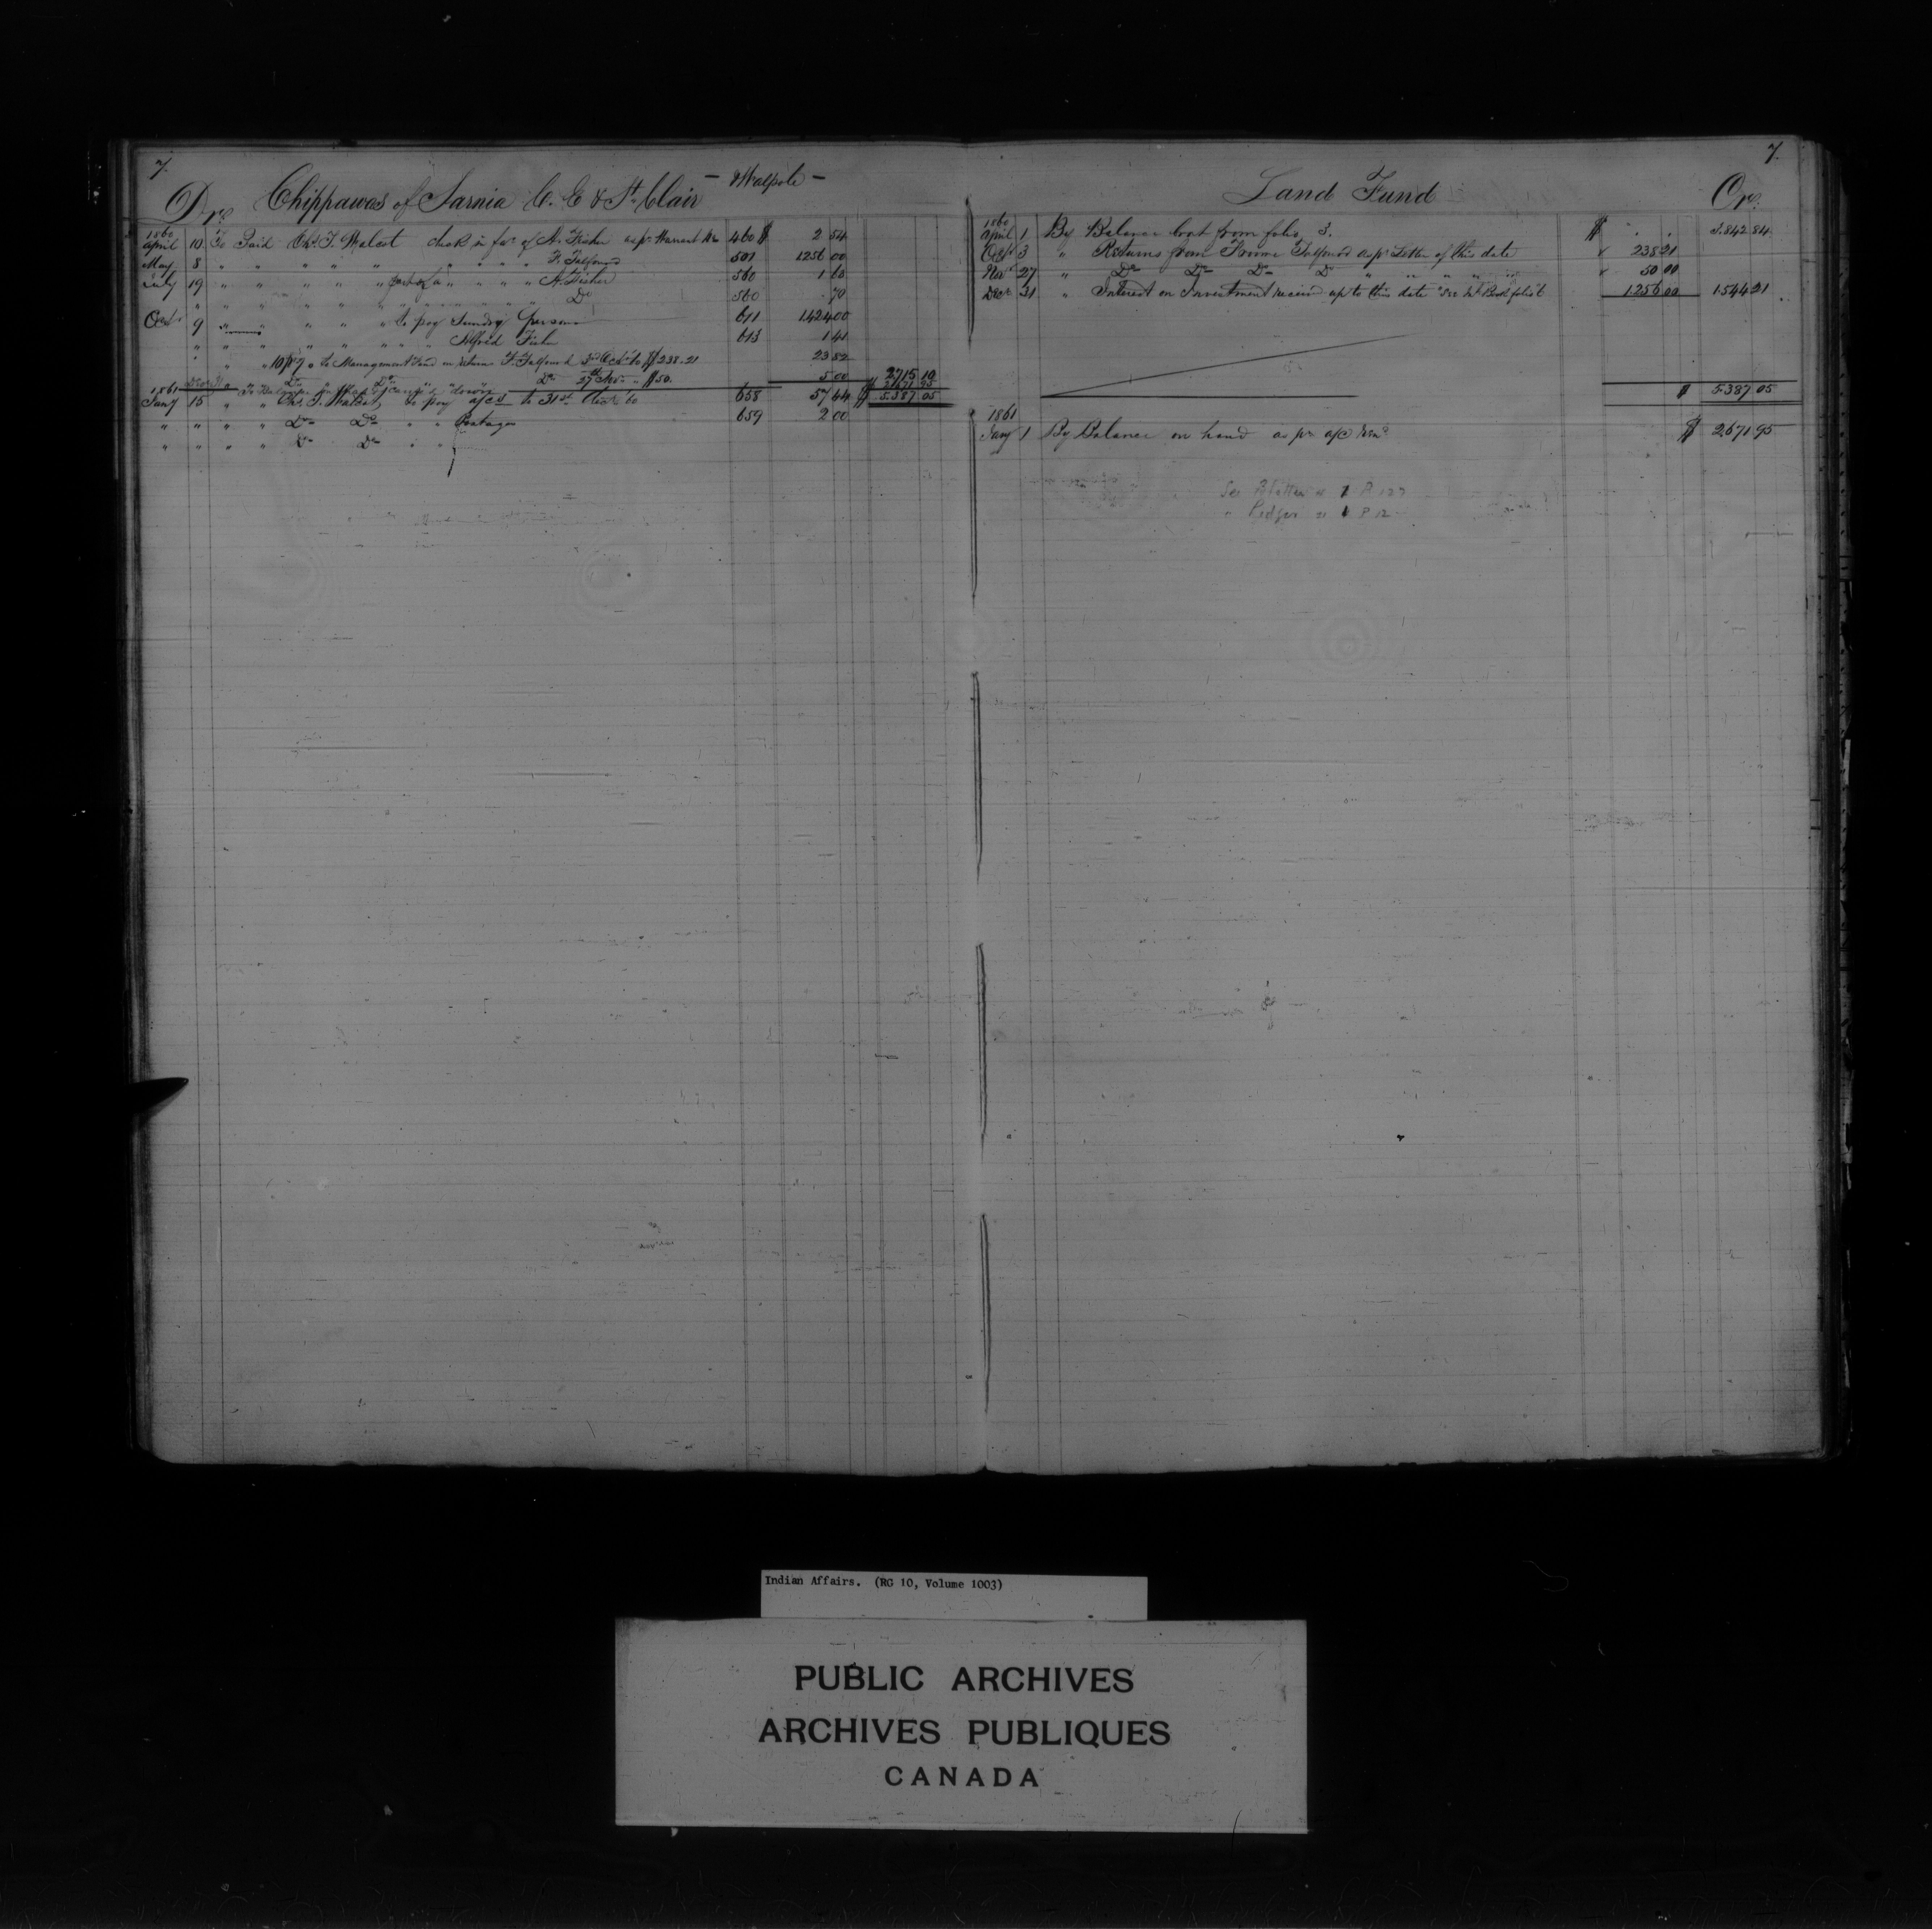 7.
Dr. Chippawas of Sarnia C. E & St. Clair - Walpole -
1860
April 10 To Paid Chs. T. Walcot check in favr of A. Fisher as pr Warrant No 460 $ 2 54
May 8 " " " " " " " " " " F. Talfourd 501 1256 00
July 19 " " " " " " " " " A. Fisher 560 1 63
" " " " " " " " " " " " Do 560 . 70
Octr 9 " " " " " to pay Sundry persons 611 1424 00
" " " " " " " " " Alfred Fisher 613 1 41
" " " 10 p% to Management Fund on return F. Talfourd 3rd Octr 60 $238.21 23 82
" Do Do Do 27th Novr " $50. 5 00 2715 10
To Balance 2671 95
$ 5.387 05
1861
Jany 15 " " Chs. T. Walcot, to pay a/cs to 31st Decr 60 658 57 44
" " " " Do Do " " Postages 659 2 00
" " " " Do Do " "
7.
Land Fund Cr.
1860
April 1 By Balance brot from folio 3. $ . . 3.842 84
Octr 3 " Returns from Froome Talfourd as pr Letter of this date 238 21
Novr 27 " Do Do Do Do " " " " " 50 00
Decr 31 " Interest on Investment received up to this date 1.256 00 1.544 21
$ 5.387 05
1861
Jany 1 By Balance on hand as pr a/c $ 2.671 95
See Blotter 1 P 127
" Ledger 1 P 12
Indian Affairs. (RG 10, Volume 1003)
PUBLIC ARCHIVES
ARCHIVES PUBLIQUES
CANADA